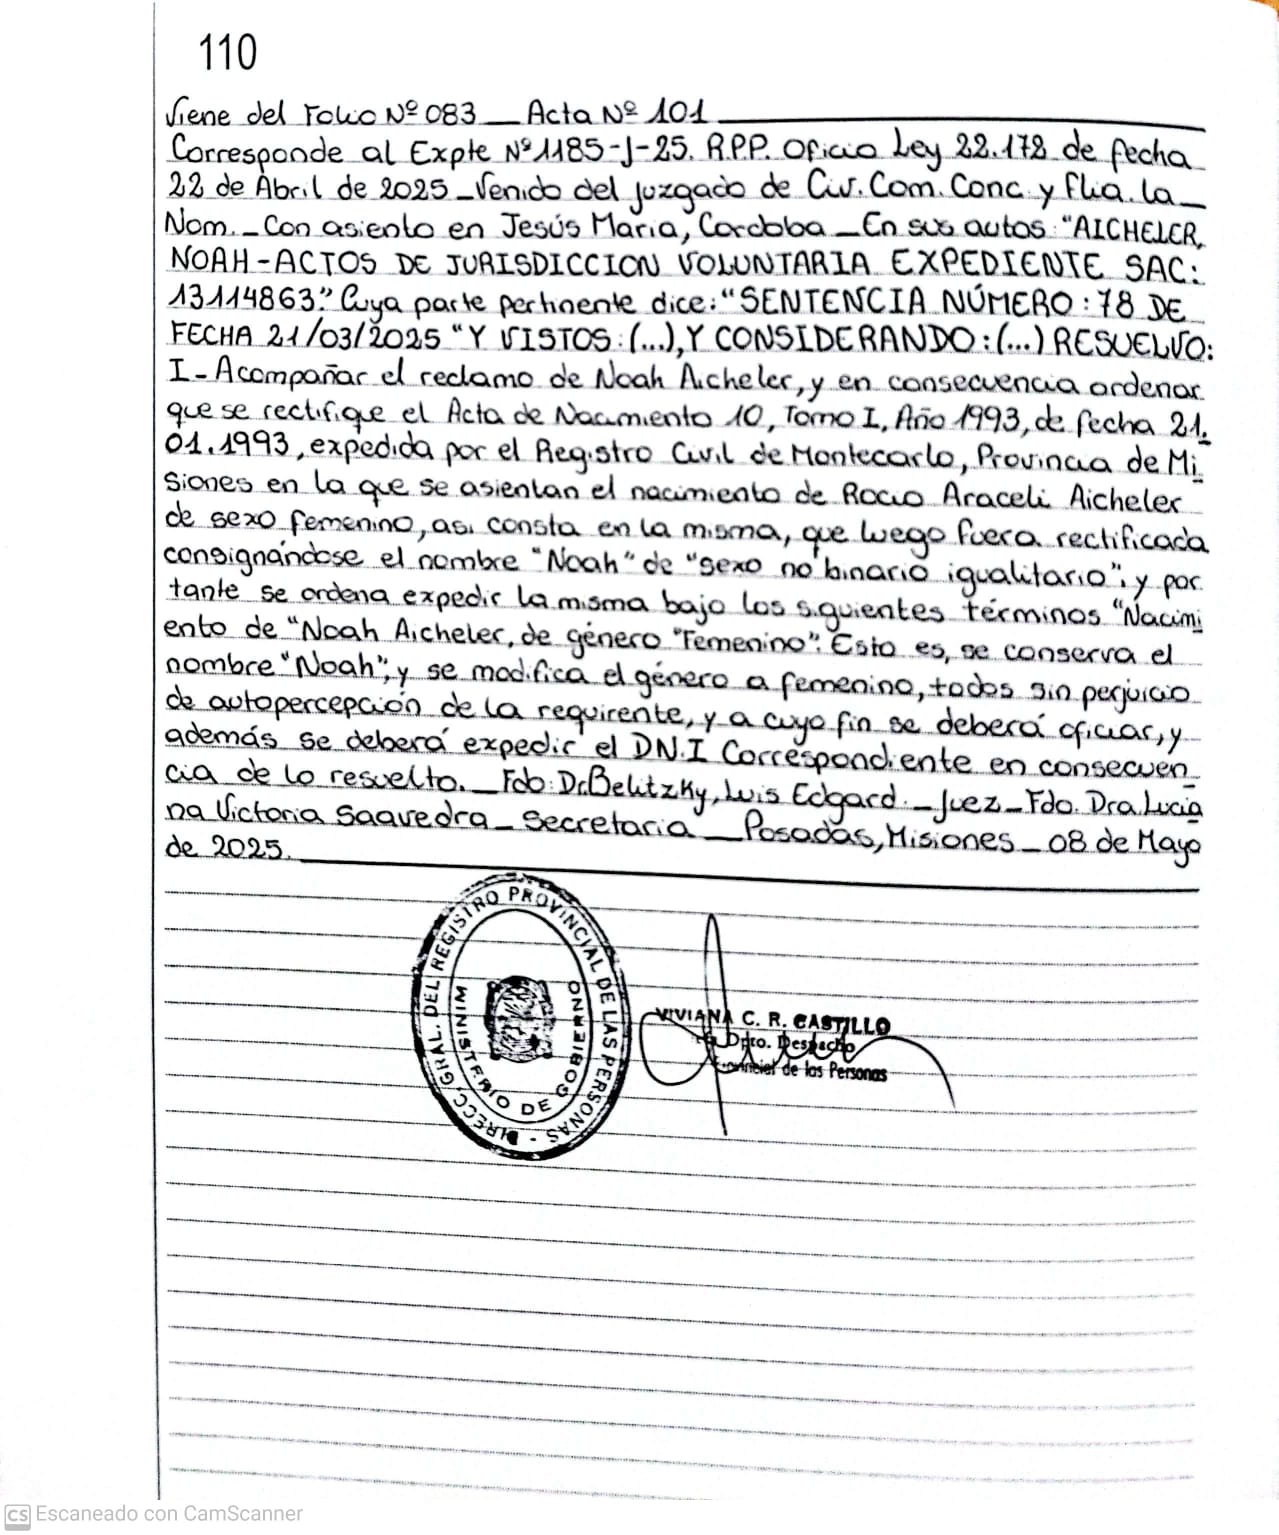 110
Viene del Folio Nº 083 _ Acta Nº 101
Corresponde al Expte Nº 1185-J-25. R.P.P. Oficio Ley 22.172 de fecha
22 de Abril de 2025 _ Venido del Juzgado de Civ. Com. Conc. y Flia. 1a _
Nom. _ Con asiento en Jesús María, Cordoba _ En sus autos: "AICHELER,
NOAH - ACTOS DE JURISDICCION VOLUNTARIA EXPEDIENTE SAC:
13114863". Cuya parte pertinente dice: "SENTENCIA NÚMERO: 78 DE
FECHA 21/03/2025 "Y VISTOS: (...), Y CONSIDERANDO: (...) RESUELVO:
I - Acompañar el reclamo de Noah Aicheler, y en consecuencia ordenar
que se rectifique el Acta de Nacimiento 10, Tomo I, Año 1993, de fecha 21.
01.1993, expedida por el Registro Civil de Montecarlo, Provincia de Mi
siones en la que se asientan el nacimiento de Rocio Araceli Aicheler
de sexo femenino, asi consta en la misma, que luego fuera rectificada
consignándose el nombre "Noah" de "sexo no binario igualitario"; y por
tante se ordena expedir la misma bajo los siguientes términos "Nacimi
ento de "Noah Aicheler, de género "Femenino". Esto es, se conserva el
nombre "Noah"; y se modifica el género a femenino, todos sin perjuicio
de autopercepción de la requirente, y a cuyo fin se deberá oficiar, y
además se deberá expedir el D.N.I Correspondiente en consecuen
cia de lo resuelto. _ Fdo: Dr. Belitzky, Luis Edgard. _ Juez _ Fdo. Dra. Lucia
na Victoria Saavedra _ Secretaria _ Posadas, Misiones _ 08 de Mayo
de 2025.
DIRECC. GRAL. DEL REGISTRO PROVINCIAL DE LAS PERSONAS -
MINISTERIO DE GOBIERNO
VIVIANA C. R. CASTILLO
Dpto. Despacho
Provincial de las Personas
CS Escaneado con CamScanner